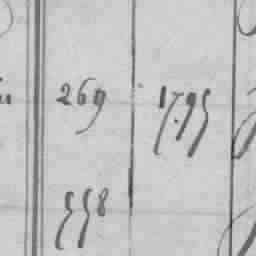 269 1795
558